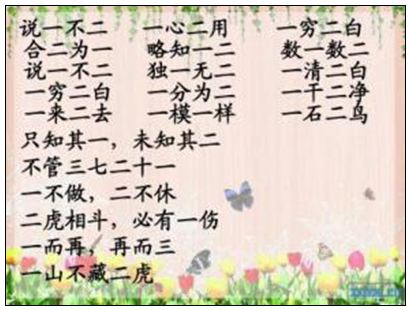 说一不二 一心二用 一穷二白
合二为一 略知一二 数一数二
说一不二 独一无二 一清二白
一穷二白 一分为二 一干二净
一来二去 一模一样 一石二鸟
只知其一，未知其二
不管三七二十一
一不做，二不休
二虎相斗，必有一伤
一而再，再而三
一山不藏二虎